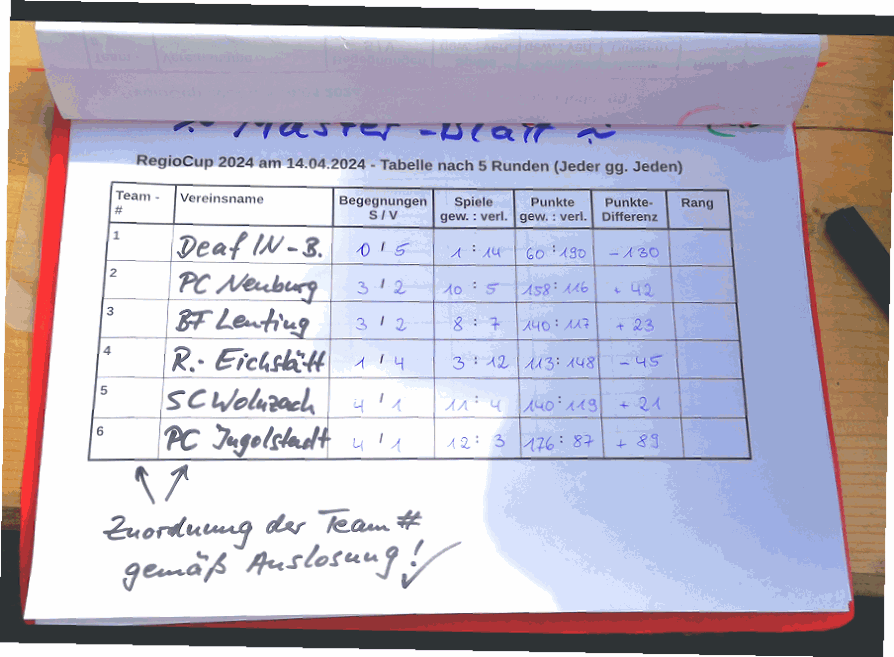 ~ Master-Blatt ~
RegioCup 2024 am 14.04.2024 - Tabelle nach 5 Runden (Jeder gg. Jeden)
Team - # Vereinsname Begegnungen S / V Spiele gew. : verl. Punkte gew. : verl. Punkte-Differenz Rang
1 Deaf IN-B. 0 / 5 1 : 14 60 : 190 - 130
2 PC Neuburg 3 / 2 10 : 5 158 : 116 + 42
3 BF Lenting 3 / 2 8 : 7 140 : 117 + 23
4 R.- Eichstätt 1 / 4 3 : 12 113 : 148 - 45
5 SC Wolnzach 4 / 1 11 : 4 140 : 119 + 21
6 PC Ingolstadt 4 / 1 12 : 3 176 : 87 + 89
Zuordnung der Team #
gemäß Auslosung!